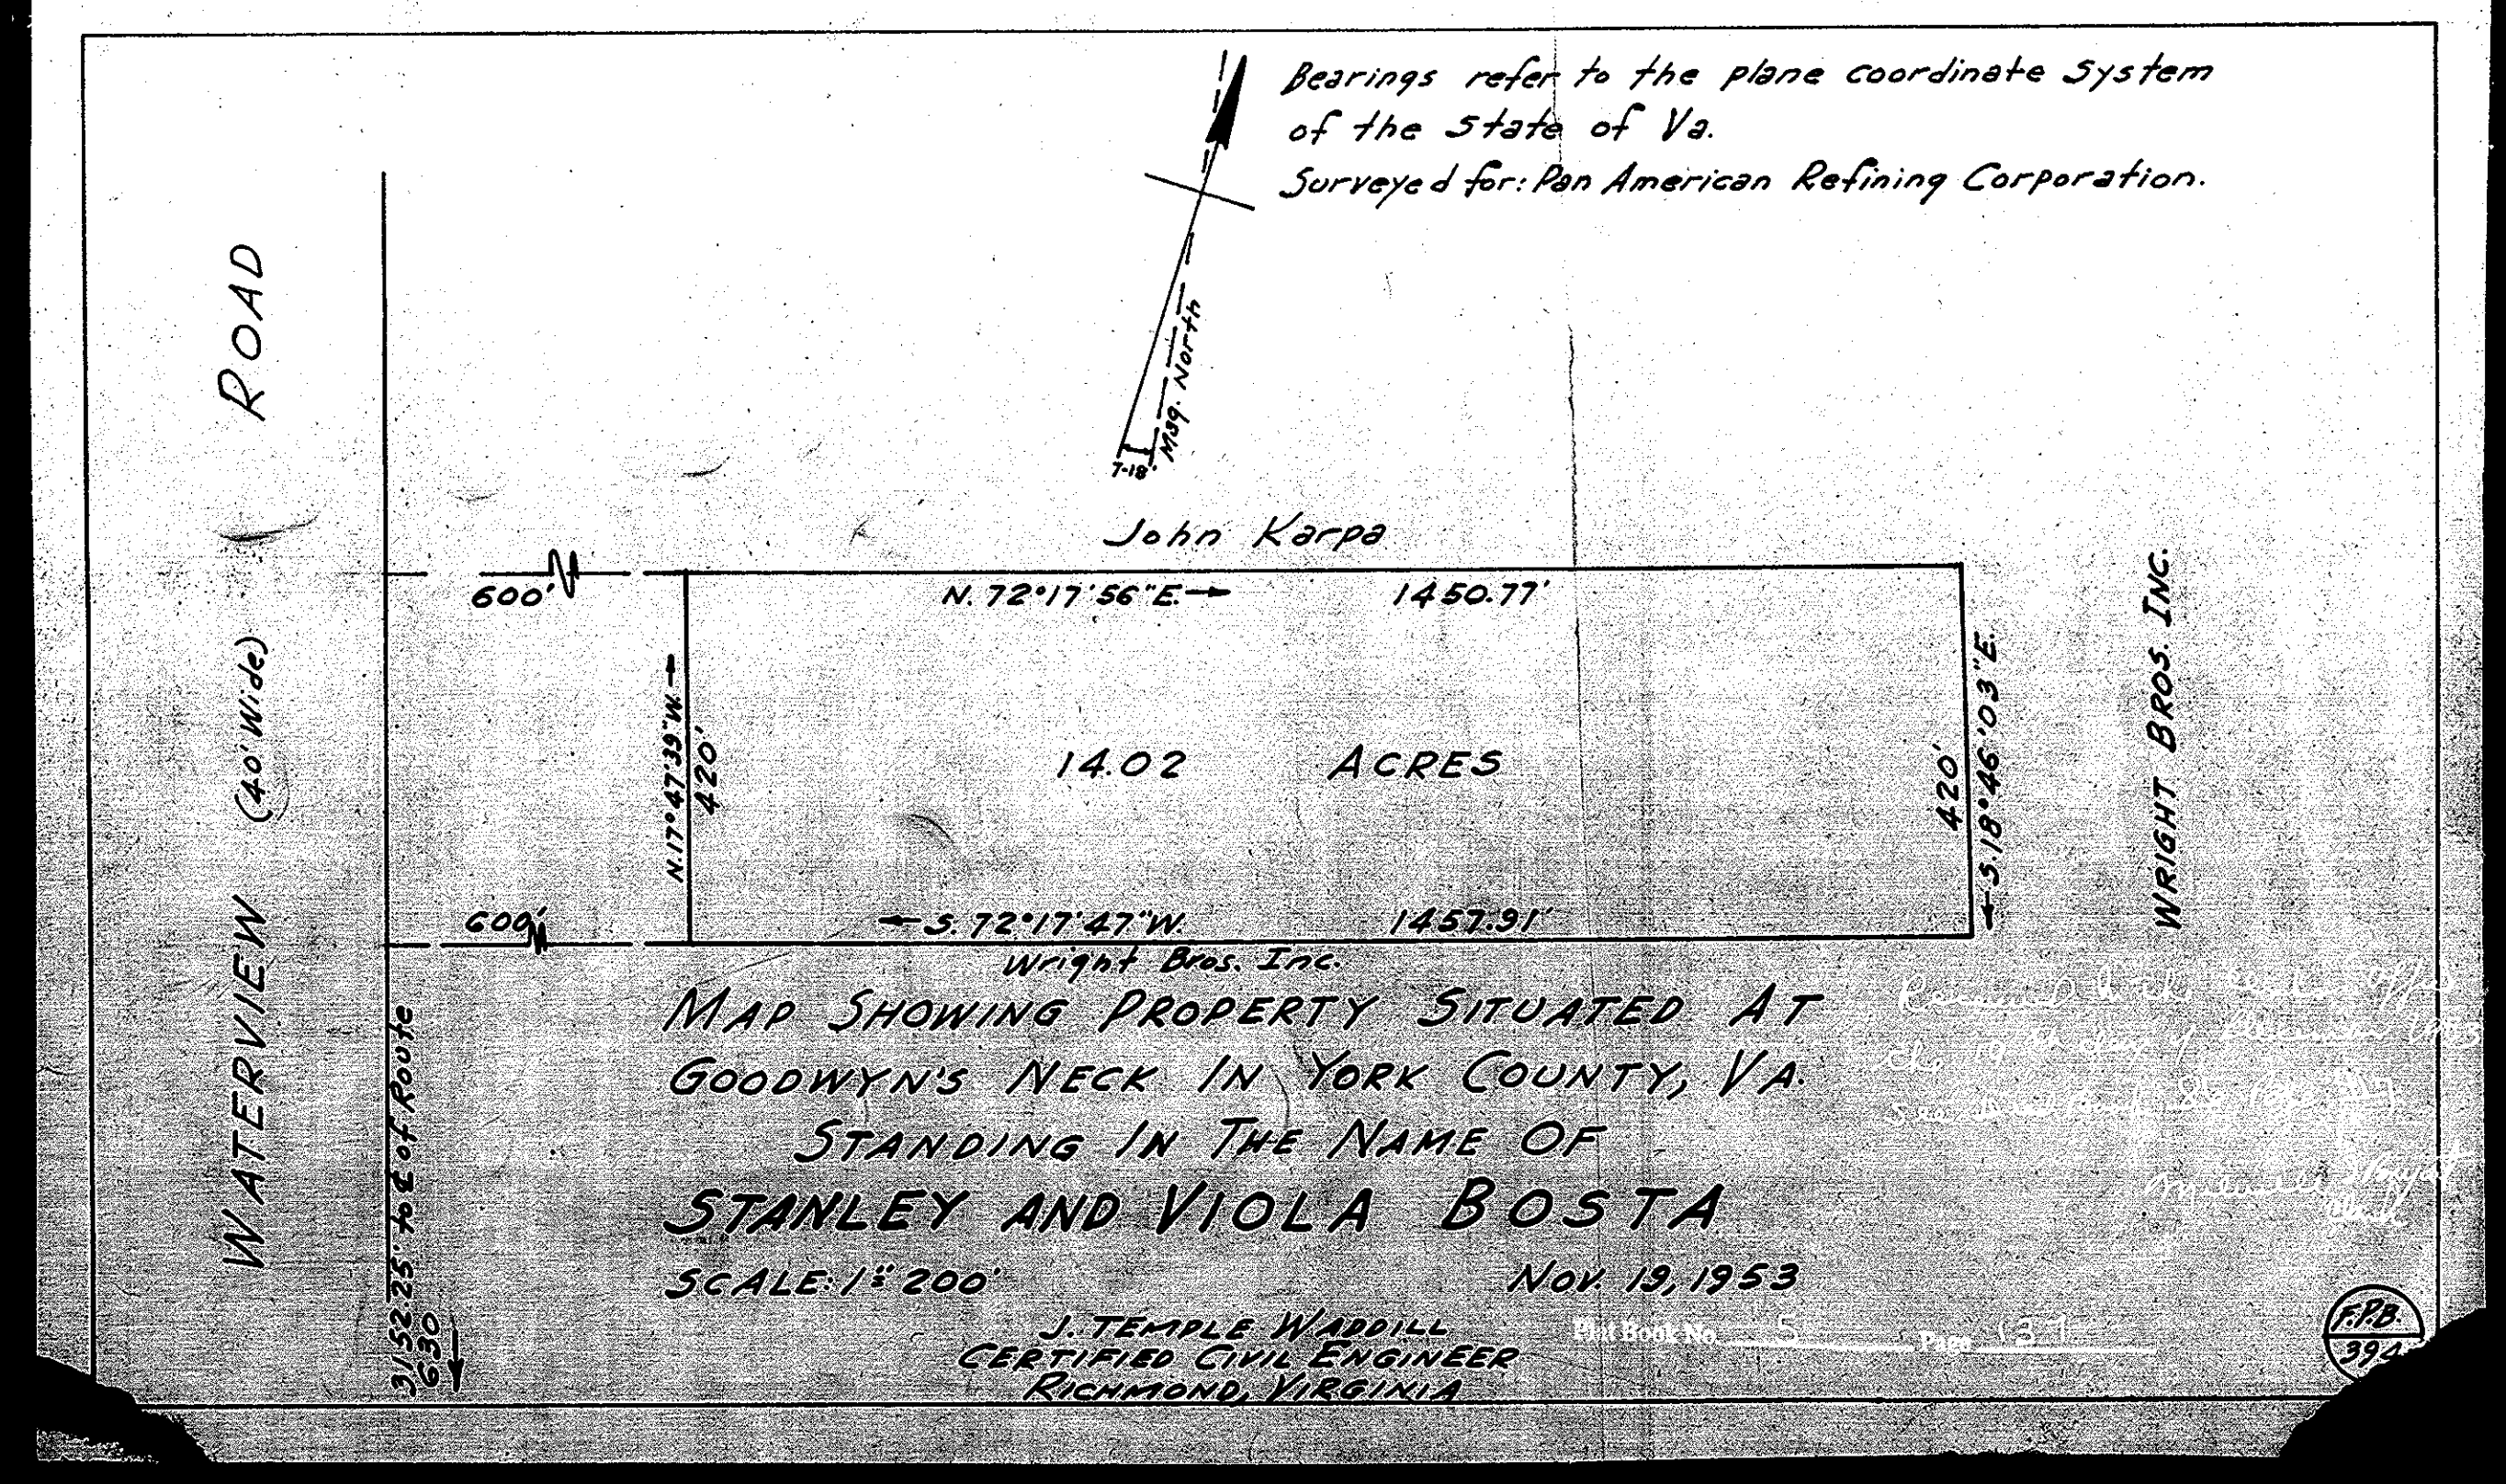 Bearings refer to the plane coordinate System
of the State of Va.
Surveyed for: Pan American Refining Corporation.
Mag. North
7-18'
WATERVIEW (40' Wide) ROAD
John Karpa
600'
N. 72°17'56"E. → 1450.77'
N.17°47'39"W. →
420'
14.02 ACRES
420'
← S.18°46'03"E.
WRIGHT BROS. INC.
600'
← S. 72°17'47"W. 1457.91'
Wright Bros. Inc.
3152.25' to ℄ of Route
630
MAP SHOWING PROPERTY SITUATED AT
GOODWYN'S NECK IN YORK COUNTY, VA.
STANDING IN THE NAME OF
STANLEY AND VIOLA BOSTA
SCALE: 1"=200' NOV. 19, 1953
J. TEMPLE WADDILL
CERTIFIED CIVIL ENGINEER
RICHMOND, VIRGINIA
Plat Book No. 5 Page 137
the 19 day of
Clerk
F.P.B.
394